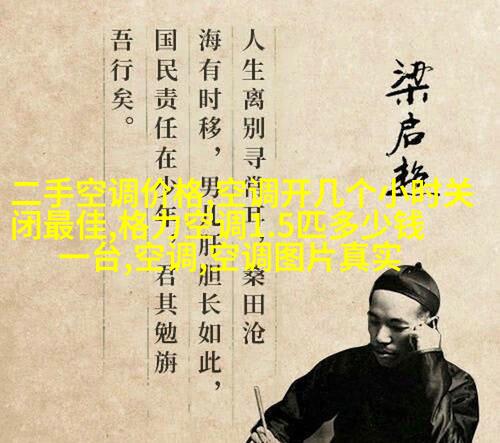 梁启超
人生离别寻常耳，桑田沧
海有时移，男儿肝胆长如此，
国民责任在少年，君其勉旃
吾行矣。
二手空调价格,空调开几个小时关
闭最佳,格力空调1.5匹多少钱
一台,空调,空调图片真实